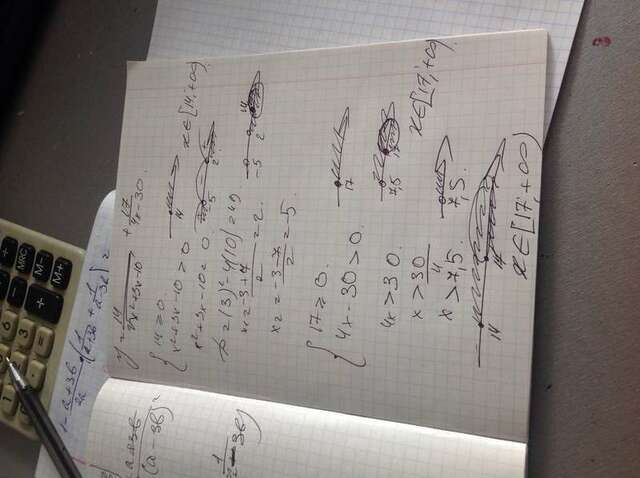 6
MRC
M-
M+
1 - a+3b/2a · (1/a+3b + 1/a-3b) =
(a-3b)²
y = 14/√x²+3x-10 + 17/4x-30.
{ 14 ≥ 0.
x²+3x-10 > 0
14
x ∈ [14; +∞)
x²+3x-10 = 0
-5 2
D = (3)² - 4(10) = 49
x₁ = -3+7/2 = 2.
-5 2 14
x₂ = -3-7/2 = -5
{ 17 ≥ 0.
4x - 30 > 0.
17
4x > 30.
7,5 17
x > 30/4
x ∈ [17; +∞)
x > 7,5.
7,5.
14 17
x ∈ [17; +∞)